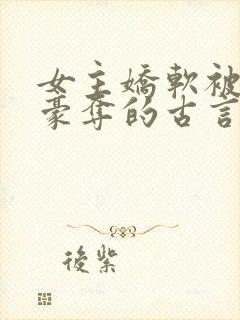 女主嬌軟被
豪奪的古言
後紫